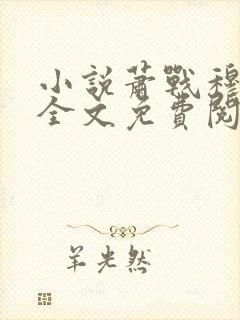 小說蕭戰穆
全文免費閱
羊光然